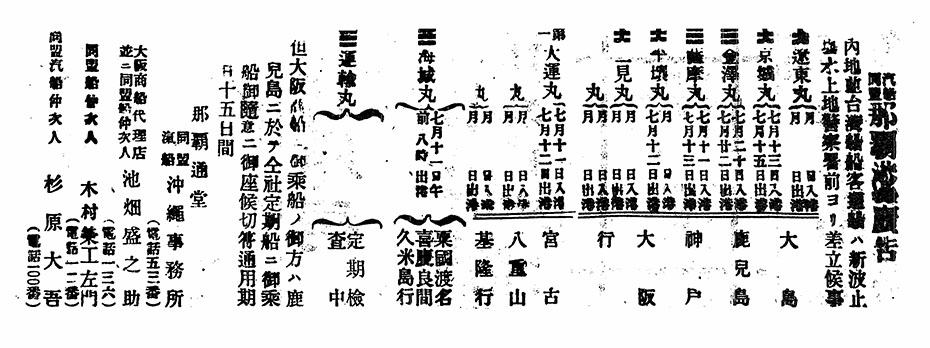 汽船同盟那覇出港廣告
内地並台灣輸船客運輸ハ新波止
塲水上地警察署前ヨリ差立候事
大遼東丸 月 日入港 月 日出港
大京城丸 七月十三日入港 七月十五日出港
三金澤丸 七月二十日入港 七月二十日出港
三薩摩丸 七月十一日入港 七月十三日出港
大平壤丸 月 日入港 七月十二日出港
大二見丸 月 日入港 月 日出港
丸 月 日入港 月 日出港
大島
鹿兒島
神戸
大阪
行
第一大運丸 七月十一日入港 七月十二日出港
宮古
丸 月 日入港 月 日出港
八重山
丸 月 日入港 月 日出港
基隆行
三海城丸 七月十日午前八時出港
粟國渡名
喜慶良間
久米島行
三運輸丸
定期檢
査中
但大阪商船ヘ御乘船ノ御方ハ鹿
兒島ニ於テ仝社定期船ニ御乘
船御隨意ニ御座候切符通用期
日十五日間
那覇通堂
同盟汽船沖繩事務所
(電話五三番)
大阪商船代理店
並ニ同盟船仲次人 池畑盛之助
(電話一三六)
同盟船仲次人 木村兼工左門
(電話一一二番)
同盟汽船仲次人 杉原大吾
(電話一〇〇番)